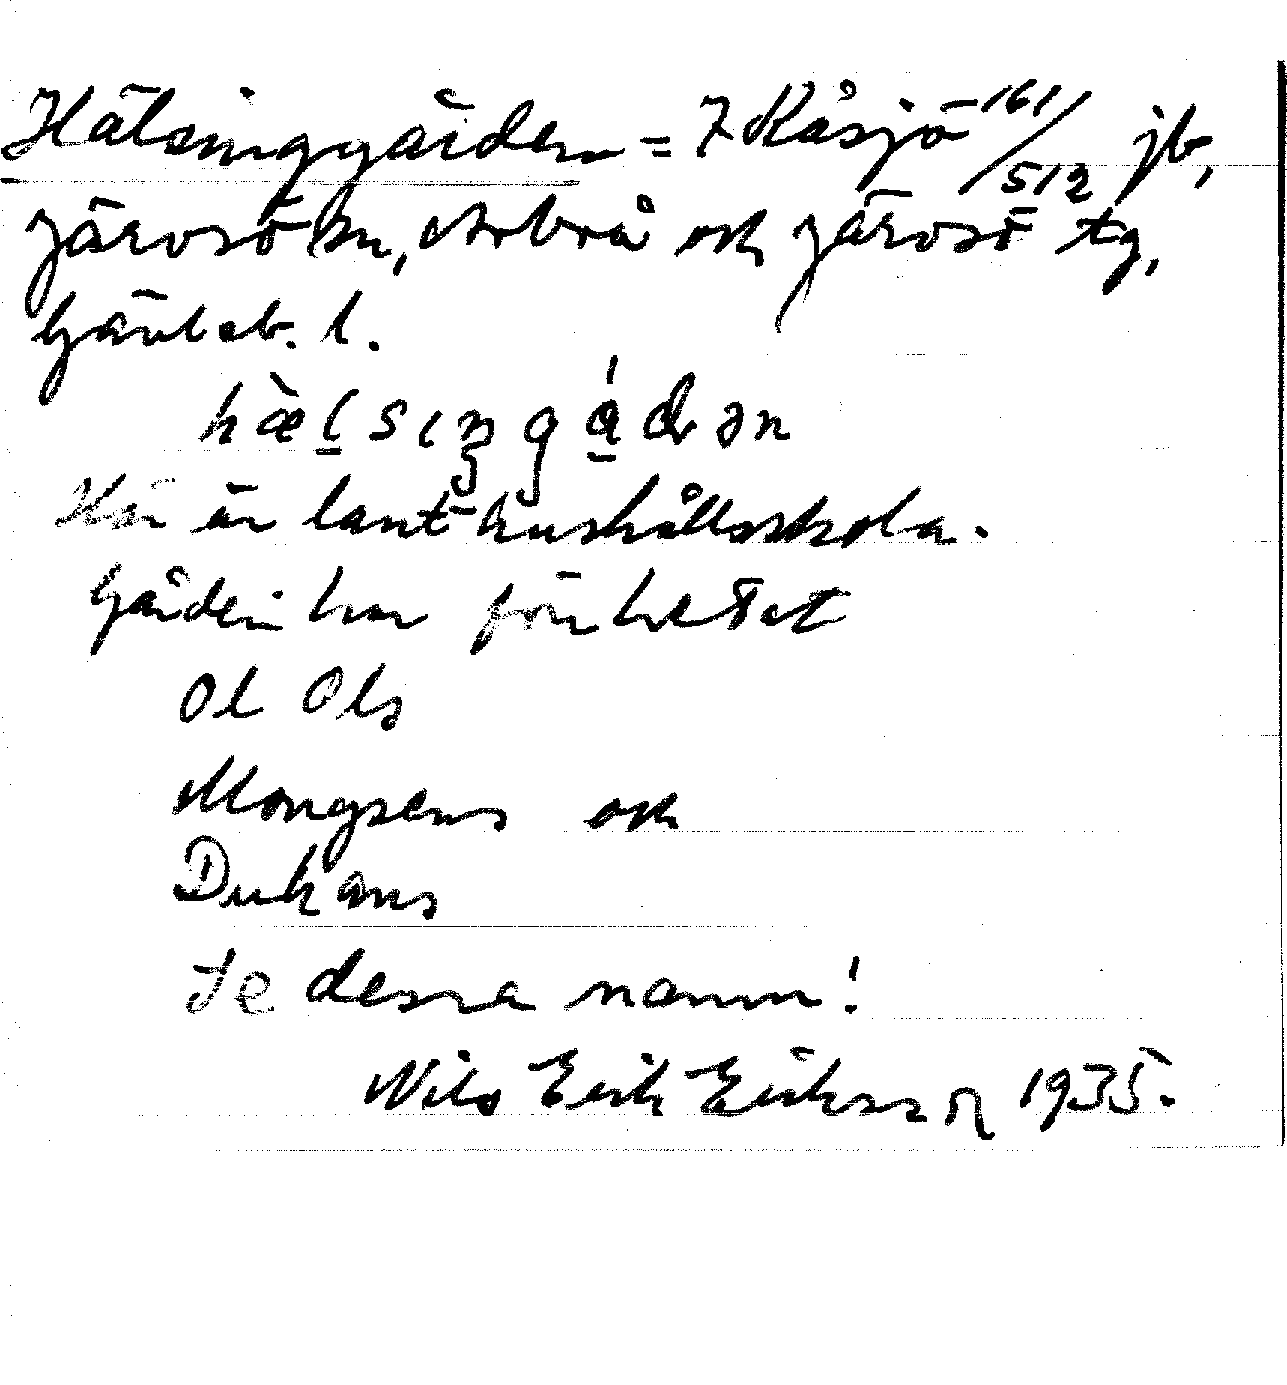 Hälsinggården = 7 Kåsjö 161/512 jb,
Järvsö sn, Arbrå och Järvsö tg,
Gävleb. l.
hæ̀lsɩŋgádən
Här är lant-hushållsskola.
Gården har förr hetat
Ol Ols
Mongsens och
Dukans
Se dessa namn!
Nils Erik Eriksson 1935.